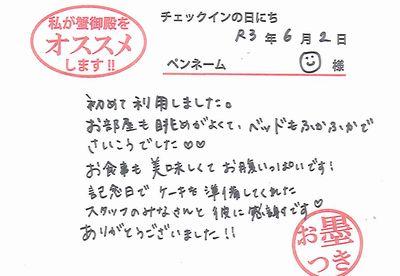 私が蟹御殿を
オススメ
します!!
チェックインの日にち
R3年6月2日
ペンネーム 様
初めて利用しました。
お部屋も眺めがよくて、ベッドもふかふかで
さいこうでした♡♡
お食事も美味しくてお腹いっぱいです!
記念日でケーキを準備してくれた
スタッフのみなさんと彼に感謝です♡
ありがとうございました!!
お墨
つき